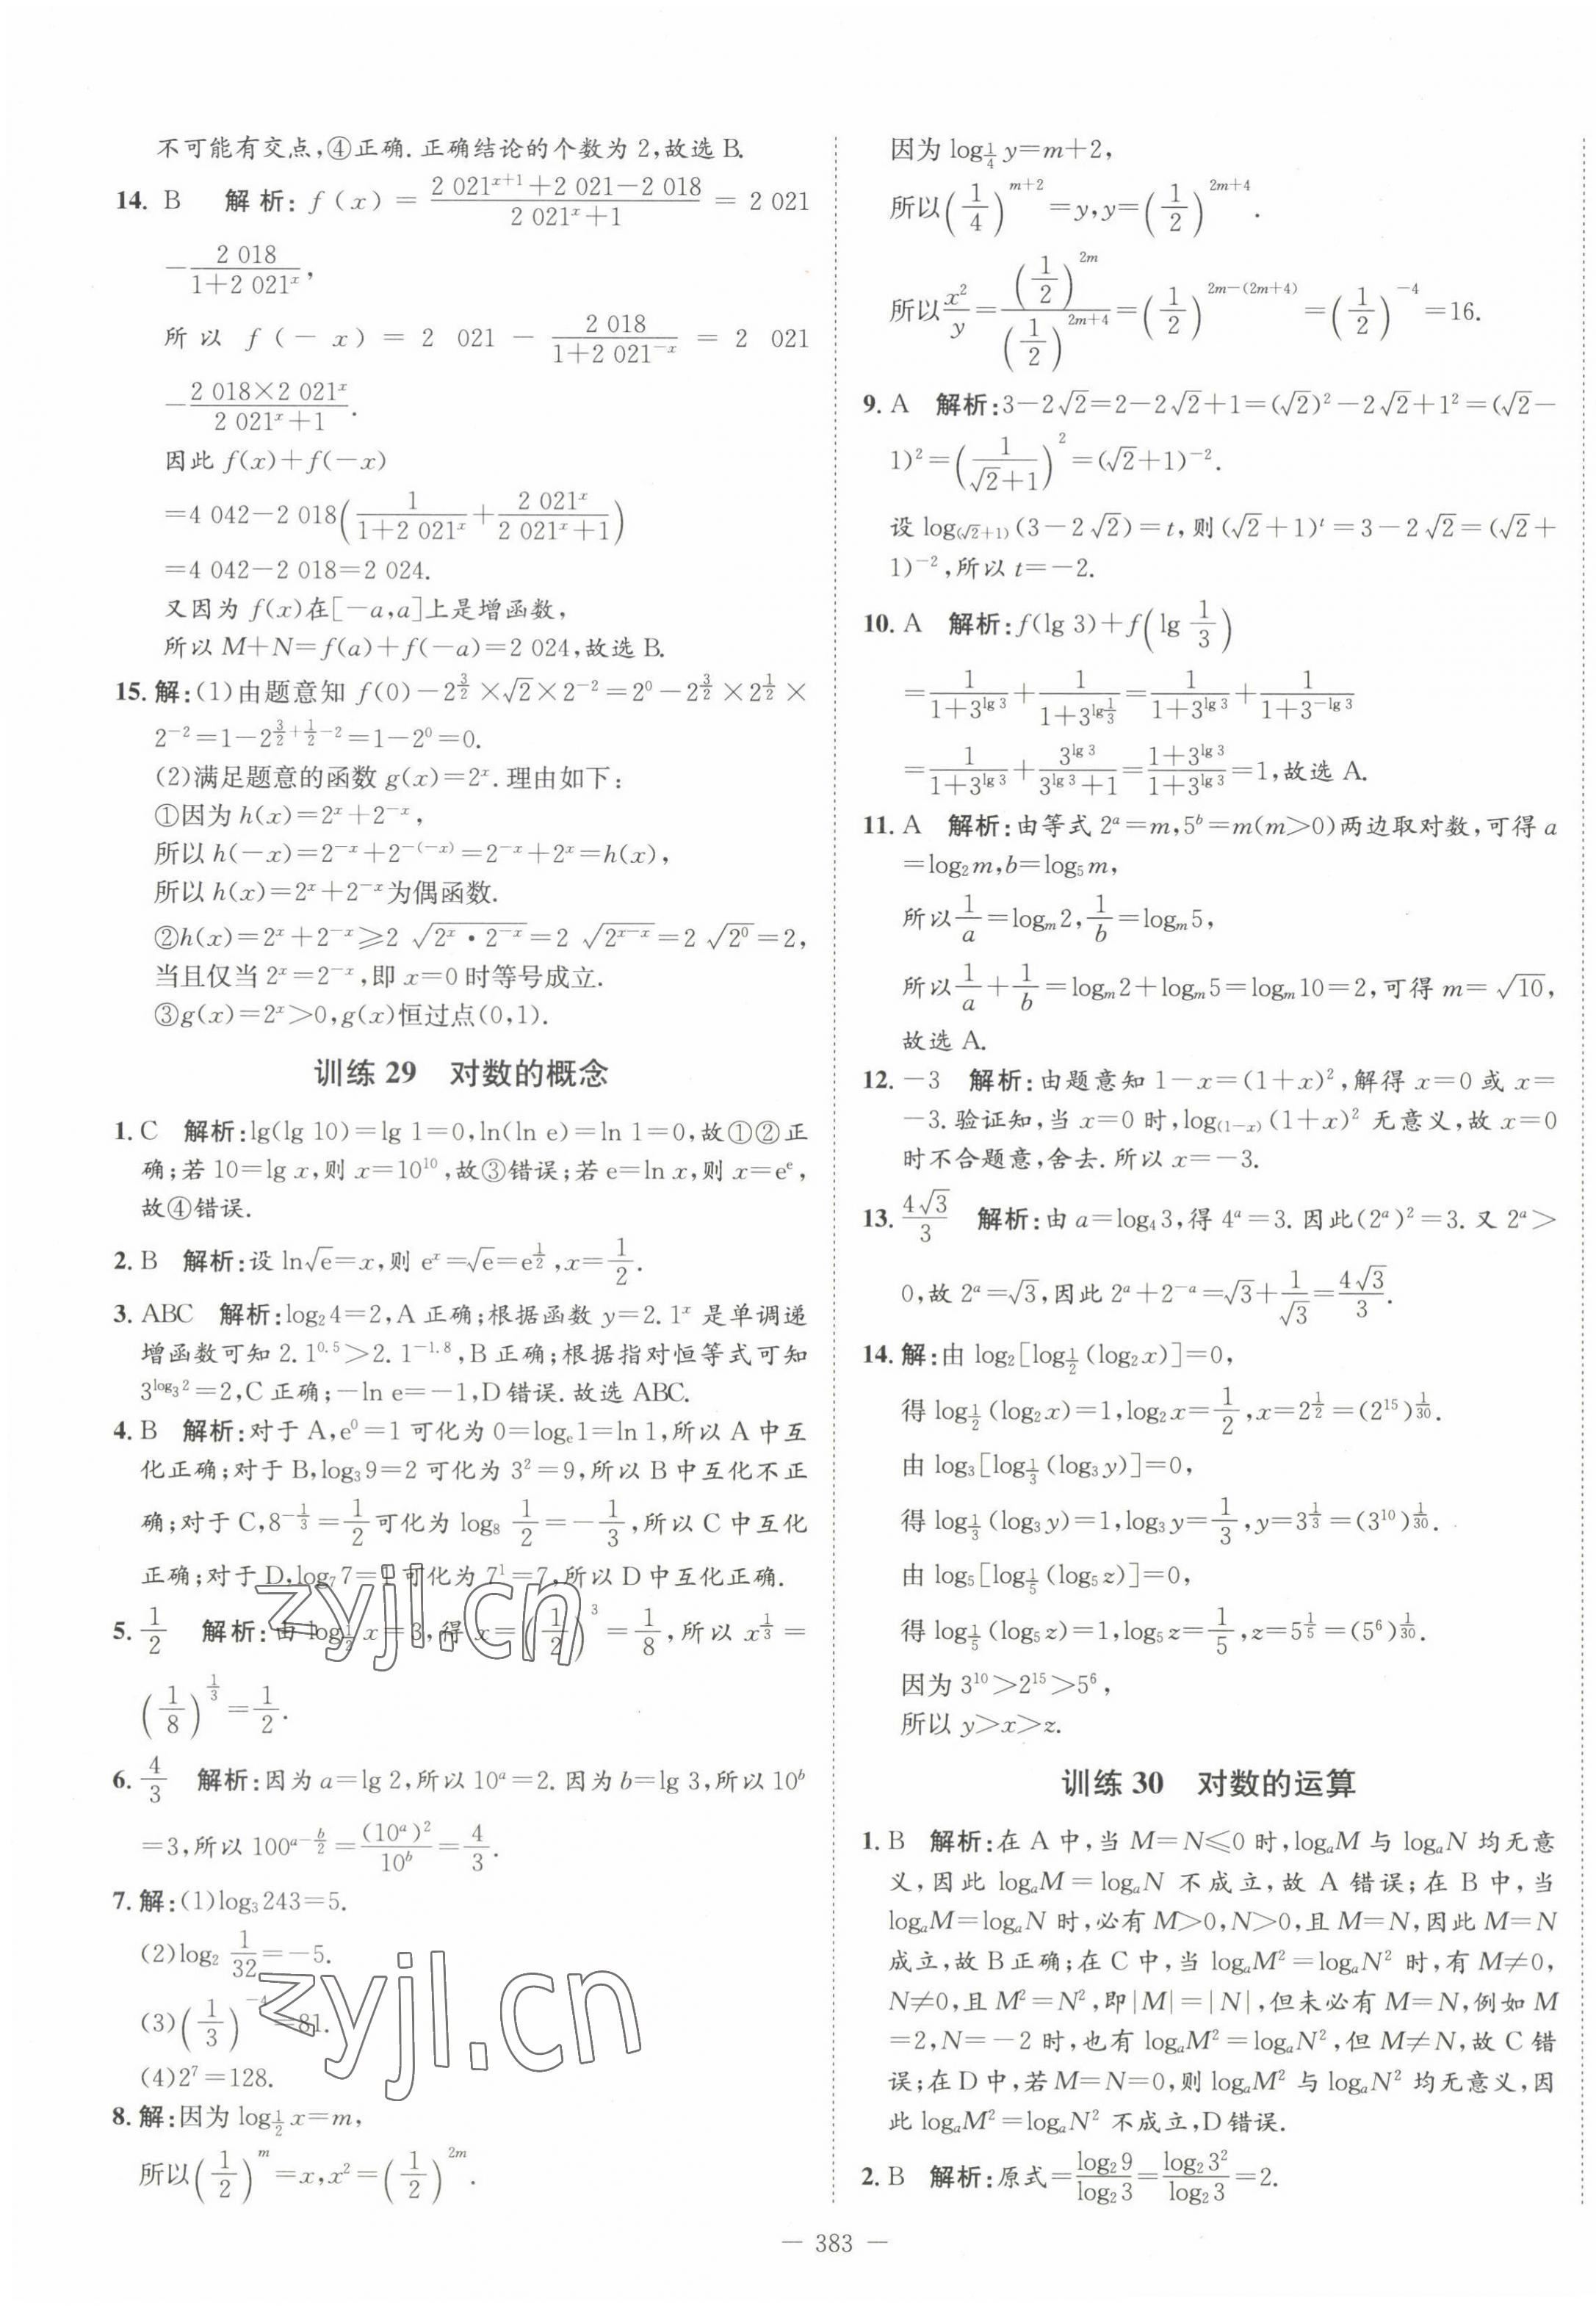 不可能有交点,④正确.正确结论的个数为 2,故选 B.
14. B 解析: f(x) = \frac{2 021^{x+1}+2 021-2 018}{2 021^x+1} = 2 021
-\frac{2 018}{1+2 021^x},
所以 f(-x) = 2 021 - \frac{2 018}{1+2 021^{-x}} = 2 021
-\frac{2 018×2 021^x}{2 021^x+1}.
因此 f(x)+f(-x)
=4 042-2 018(\frac{1}{1+2 021^x}+\frac{2 021^x}{2 021^x+1})
=4 042-2 018=2 024.
又因为 f(x)在[-a,a]上是增函数,
所以 M+N=f(a)+f(-a)=2 024,故选 B.
15. 解:(1)由题意知 f(0)-2^{\frac{3}{2}}×√2×2^{-2}=2^0-2^{\frac{3}{2}}×2^{\frac{1}{2}}×
2^{-2}=1-2^{\frac{3}{2}+\frac{1}{2}-2}=1-2^0=0.
(2)满足题意的函数 g(x)=2^x.理由如下:
①因为 h(x)=2^x+2^{-x},
所以 h(-x)=2^{-x}+2^{-(-x)}=2^{-x}+2^x=h(x),
所以 h(x)=2^x+2^{-x}为偶函数.
②h(x)=2^x+2^{-x}≥2\sqrt{2^x·2^{-x}}=2\sqrt{2^{x-x}}=2\sqrt{2^0}=2,
当且仅当 2^x=2^{-x},即 x=0 时等号成立.
③g(x)=2^x>0,g(x)恒过点(0,1).
训练 29 对数的概念
1. C 解析:lg(lg 10)=lg 1=0,ln(ln e)=ln 1=0,故①②正
确;若 10=lg x,则 x=10^{10},故③错误;若 e=ln x,则 x=e^e,
故④错误.
2. B 解析:设 ln√e=x,则 e^x=√e=e^{\frac{1}{2}},x=\frac{1}{2}.
3. ABC 解析:log_2 4=2,A 正确;根据函数 y=2.1^x 是单调递
增函数可知 2.1^{0.5}>2.1^{-1.8},B 正确;根据指对恒等式可知
3^{log_3 2}=2,C 正确;-ln e=-1,D 错误.故选 ABC.
4. B 解析:对于 A,e^0=1 可化为 0=log_e 1=ln 1,所以 A 中互
化正确;对于 B,log_3 9=2 可化为 3^2=9,所以 B 中互化不正
确;对于 C,8^{-\frac{1}{3}}=\frac{1}{2}可化为 log_8 \frac{1}{2}=-\frac{1}{3},所以 C 中互化
正确;对于 D,log_7 7=1 可化为 7^1=7,所以 D 中互化正确.
5. \frac{1}{2} 解析:由 log_{\frac{1}{2}} x=3,得 x=(\frac{1}{2})^3=\frac{1}{8},所以 x^{\frac{1}{3}}=
(\frac{1}{8})^{\frac{1}{3}}=\frac{1}{2}.
6. \frac{4}{3} 解析:因为 a=lg 2,所以 10^a=2.因为 b=lg 3,所以 10^b
=3,所以 100^{a-\frac{b}{2}}=\frac{(10^a)^2}{10^b}=\frac{4}{3}.
7. 解:(1)log_3 243=5.
(2)log_2 \frac{1}{32}=-5.
(3)(\frac{1}{3})^{-4}=81.
(4)2^7=128.
8. 解:因为 log_{\frac{1}{2}} x=m,
所以(\frac{1}{2})^m=x,x^2=(\frac{1}{2})^{2m}.
因为 log_{\frac{1}{4}} y=m+2,
所以(\frac{1}{4})^{m+2}=y,y=(\frac{1}{2})^{2m+4}.
所以\frac{x^2}{y}=\frac{(\frac{1}{2})^{2m}}{(\frac{1}{2})^{2m+4}}=(\frac{1}{2})^{2m-(2m+4)}=(\frac{1}{2})^{-4}=16.
9. A 解析:3-2√2=2-2√2+1=(√2)^2-2√2+1^2=(√2-
1)^2=(\frac{1}{√2+1})^2=(√2+1)^{-2}.
设 log_{(√2+1)}(3-2√2)=t,则(√2+1)^t=3-2√2=(√2+
1)^{-2},所以 t=-2.
10. A 解析:f(lg 3)+f(lg \frac{1}{3})
=\frac{1}{1+3^{lg 3}}+\frac{1}{1+3^{lg\frac{1}{3}}}=\frac{1}{1+3^{lg 3}}+\frac{1}{1+3^{-lg 3}}
=\frac{1}{1+3^{lg 3}}+\frac{3^{lg 3}}{3^{lg 3}+1}=\frac{1+3^{lg 3}}{1+3^{lg 3}}=1,故选 A.
11. A 解析:由等式 2^a=m,5^b=m(m>0)两边取对数,可得 a
=log_2 m,b=log_5 m,
所以\frac{1}{a}=log_m 2,\frac{1}{b}=log_m 5,
所以\frac{1}{a}+\frac{1}{b}=log_m 2+log_m 5=log_m 10=2,可得 m=\sqrt{10},
故选 A.
12. -3 解析:由题意知 1-x=(1+x)^2,解得 x=0 或 x=
-3.验证知,当 x=0 时,log_{(1-x)}(1+x)^2 无意义,故 x=0
时不合题意,舍去.所以 x=-3.
13. \frac{4√3}{3} 解析:由 a=log_4 3,得 4^a=3.因此(2^a)^2=3.又 2^a>
0,故 2^a=√3,因此 2^a+2^{-a}=√3+\frac{1}{√3}=\frac{4√3}{3}.
14. 解:由 log_2[log_{\frac{1}{2}}(log_2 x)]=0,
得 log_{\frac{1}{2}}(log_2 x)=1,log_2 x=\frac{1}{2},x=2^{\frac{1}{2}}=(2^{15})^{\frac{1}{30}}.
由 log_3[log_{\frac{1}{3}}(log_3 y)]=0,
得 log_{\frac{1}{3}}(log_3 y)=1,log_3 y=\frac{1}{3},y=3^{\frac{1}{3}}=(3^{10})^{\frac{1}{30}}.
由 log_5[log_{\frac{1}{5}}(log_5 z)]=0,
得 log_{\frac{1}{5}}(log_5 z)=1,log_5 z=\frac{1}{5},z=5^{\frac{1}{5}}=(5^6)^{\frac{1}{30}}.
因为 3^{10}>2^{15}>5^6,
所以 y>x>z.
训练 30 对数的运算
1. B 解析:在 A 中,当 M=N≤0 时,log_a M 与 log_a N 均无意
义,因此 log_a M=log_a N 不成立,故 A 错误;在 B 中,当
log_a M=log_a N 时,必有 M>0,N>0,且 M=N,因此 M=N
成立,故 B 正确;在 C 中,当 log_a M^2=log_a N^2 时,有 M≠0,
N≠0,且 M^2=N^2,即|M|=|N|,但未必有 M=N,例如 M
=2,N=-2 时,也有 log_a M^2=log_a N^2,但 M≠N,故 C 错
误;在 D 中,若 M=N=0,则 log_a M^2 与 log_a N^2 均无意义,因
此 log_a M^2=log_a N^2 不成立,D 错误.
2. B 解析:原式=\frac{log_2 9}{log_2 3}=\frac{log_2 3^2}{log_2 3}=2.
— 383 —
zyjl.cn
zyjl.cn